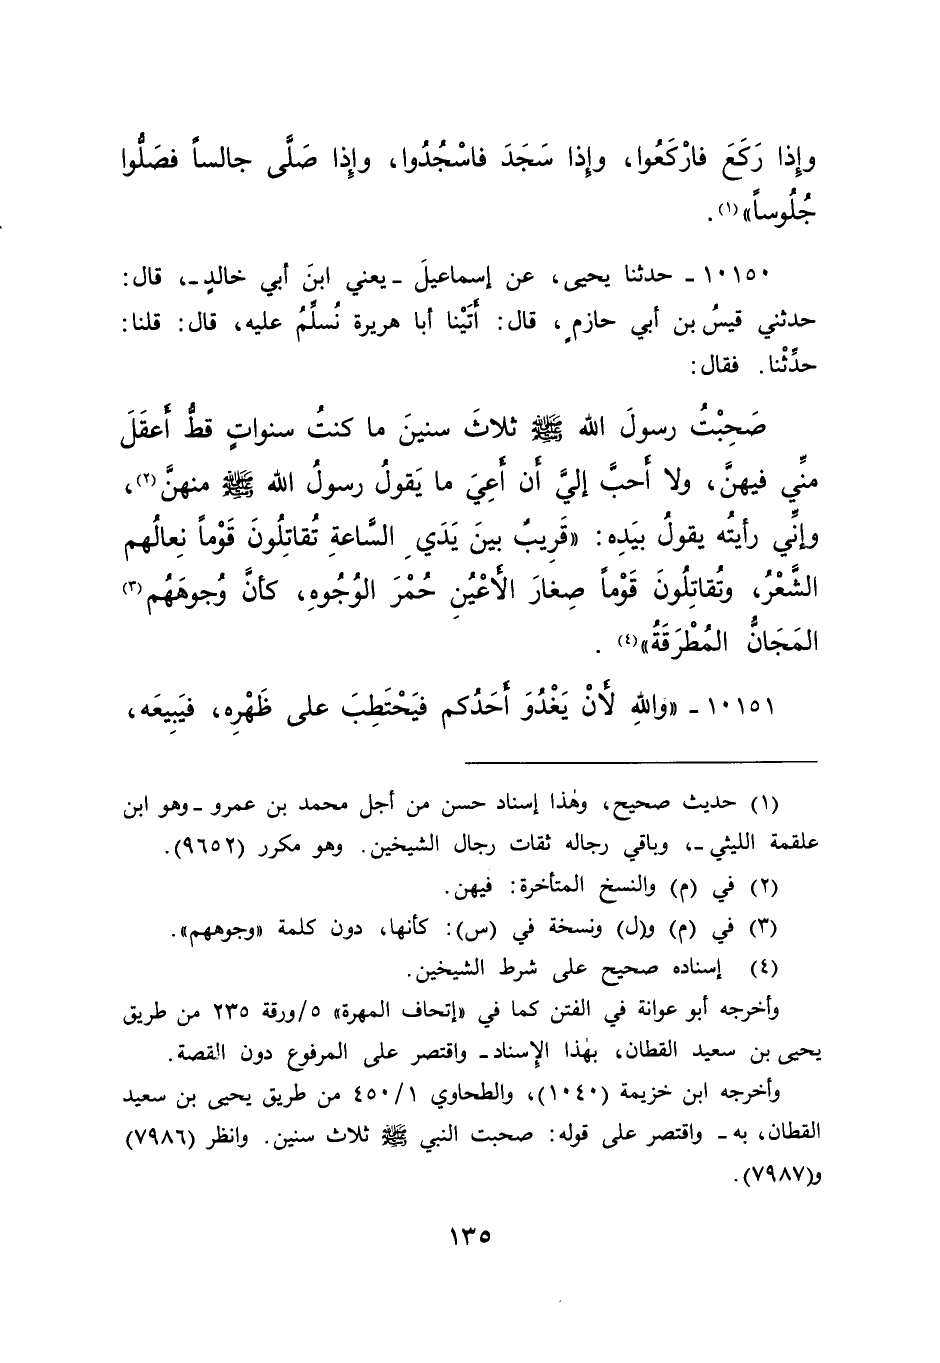 وإِذا رَكَعَ فارْكَعُوا، وإِذا سَجَدَ فاسْجُدُوا، وإِذا صَلَّى جالساً فصَلُّوا
جُلُوساً»(١).
١٠١٥٠ ـ حدثنا يحيى، عن إسماعيلَ ـ يعني ابنَ أبي خالدٍ ـ، قال:
حدثني قيسُ بن أبي حازمٍ، قال: أَتَيْنا أبا هريرة نُسلِّمُ عليه، قال: قلنا:
حدِّثْنا. فقال:
صَحِبْتُ رسولَ الله ﷺ ثلاثَ سنينَ ما كنتُ سنواتٍ قطُّ أَعقَلَ
منِّي فيهنَّ، ولا أَحبَّ إليَّ أَن أَعِيَ ما يَقولُ رسولُ الله ﷺ منهنَّ(٢)،
وإنِّي رأيتُه يقولُ بيَدِه: «قَرِيبٌ بينَ يَدَي السَّاعةِ تُقاتِلُونَ قَوْماً نِعالُهم
الشَّعْرُ، وتُقاتِلُونَ قَوْماً صِغارَ الأَعْيُنِ حُمْرَ الوُجُوهِ، كأنَّ وُجوهَهُم(٣)
المَجَانُّ المُطْرَقَةُ»(٤).
١٠١٥١ ـ «واللهِ لَأَنْ يَغْدُوَ أَحَدُكم فيَحْتَطِبَ على ظَهْرِه، فيَبِيعَه،
(١) حديث صحيح، وهٰذا إسناد حسن من أجل محمد بن عمرو ـ وهو ابن
علقمة الليثي ـ، وباقي رجاله ثقات رجال الشيخين. وهو مكرر (٩٦٥٢).
(٢) في (م) والنسخ المتأخرة: فيهن.
(٣) في (م) و(ل) ونسخة في (س): كأنها، دون كلمة «وجوههم».
(٤) إسناده صحيح على شرط الشيخين.
وأخرجه أبو عوانة في الفتن كما في «إتحاف المهرة» ٥/ورقة ٢٣٥ من طريق
يحيى بن سعيد القطان، بهٰذا الإسناد ـ واقتصر على المرفوع دون القصة.
وأخرجه ابن خزيمة (١٠٤٠)، والطحاوي ٤٥٠/١ من طريق يحيى بن سعيد
القطان، به ـ واقتصر على قوله: صحبت النبي ﷺ ثلاث سنين. وانظر (٧٩٨٦)
و(٧٩٨٧).
١٣٥